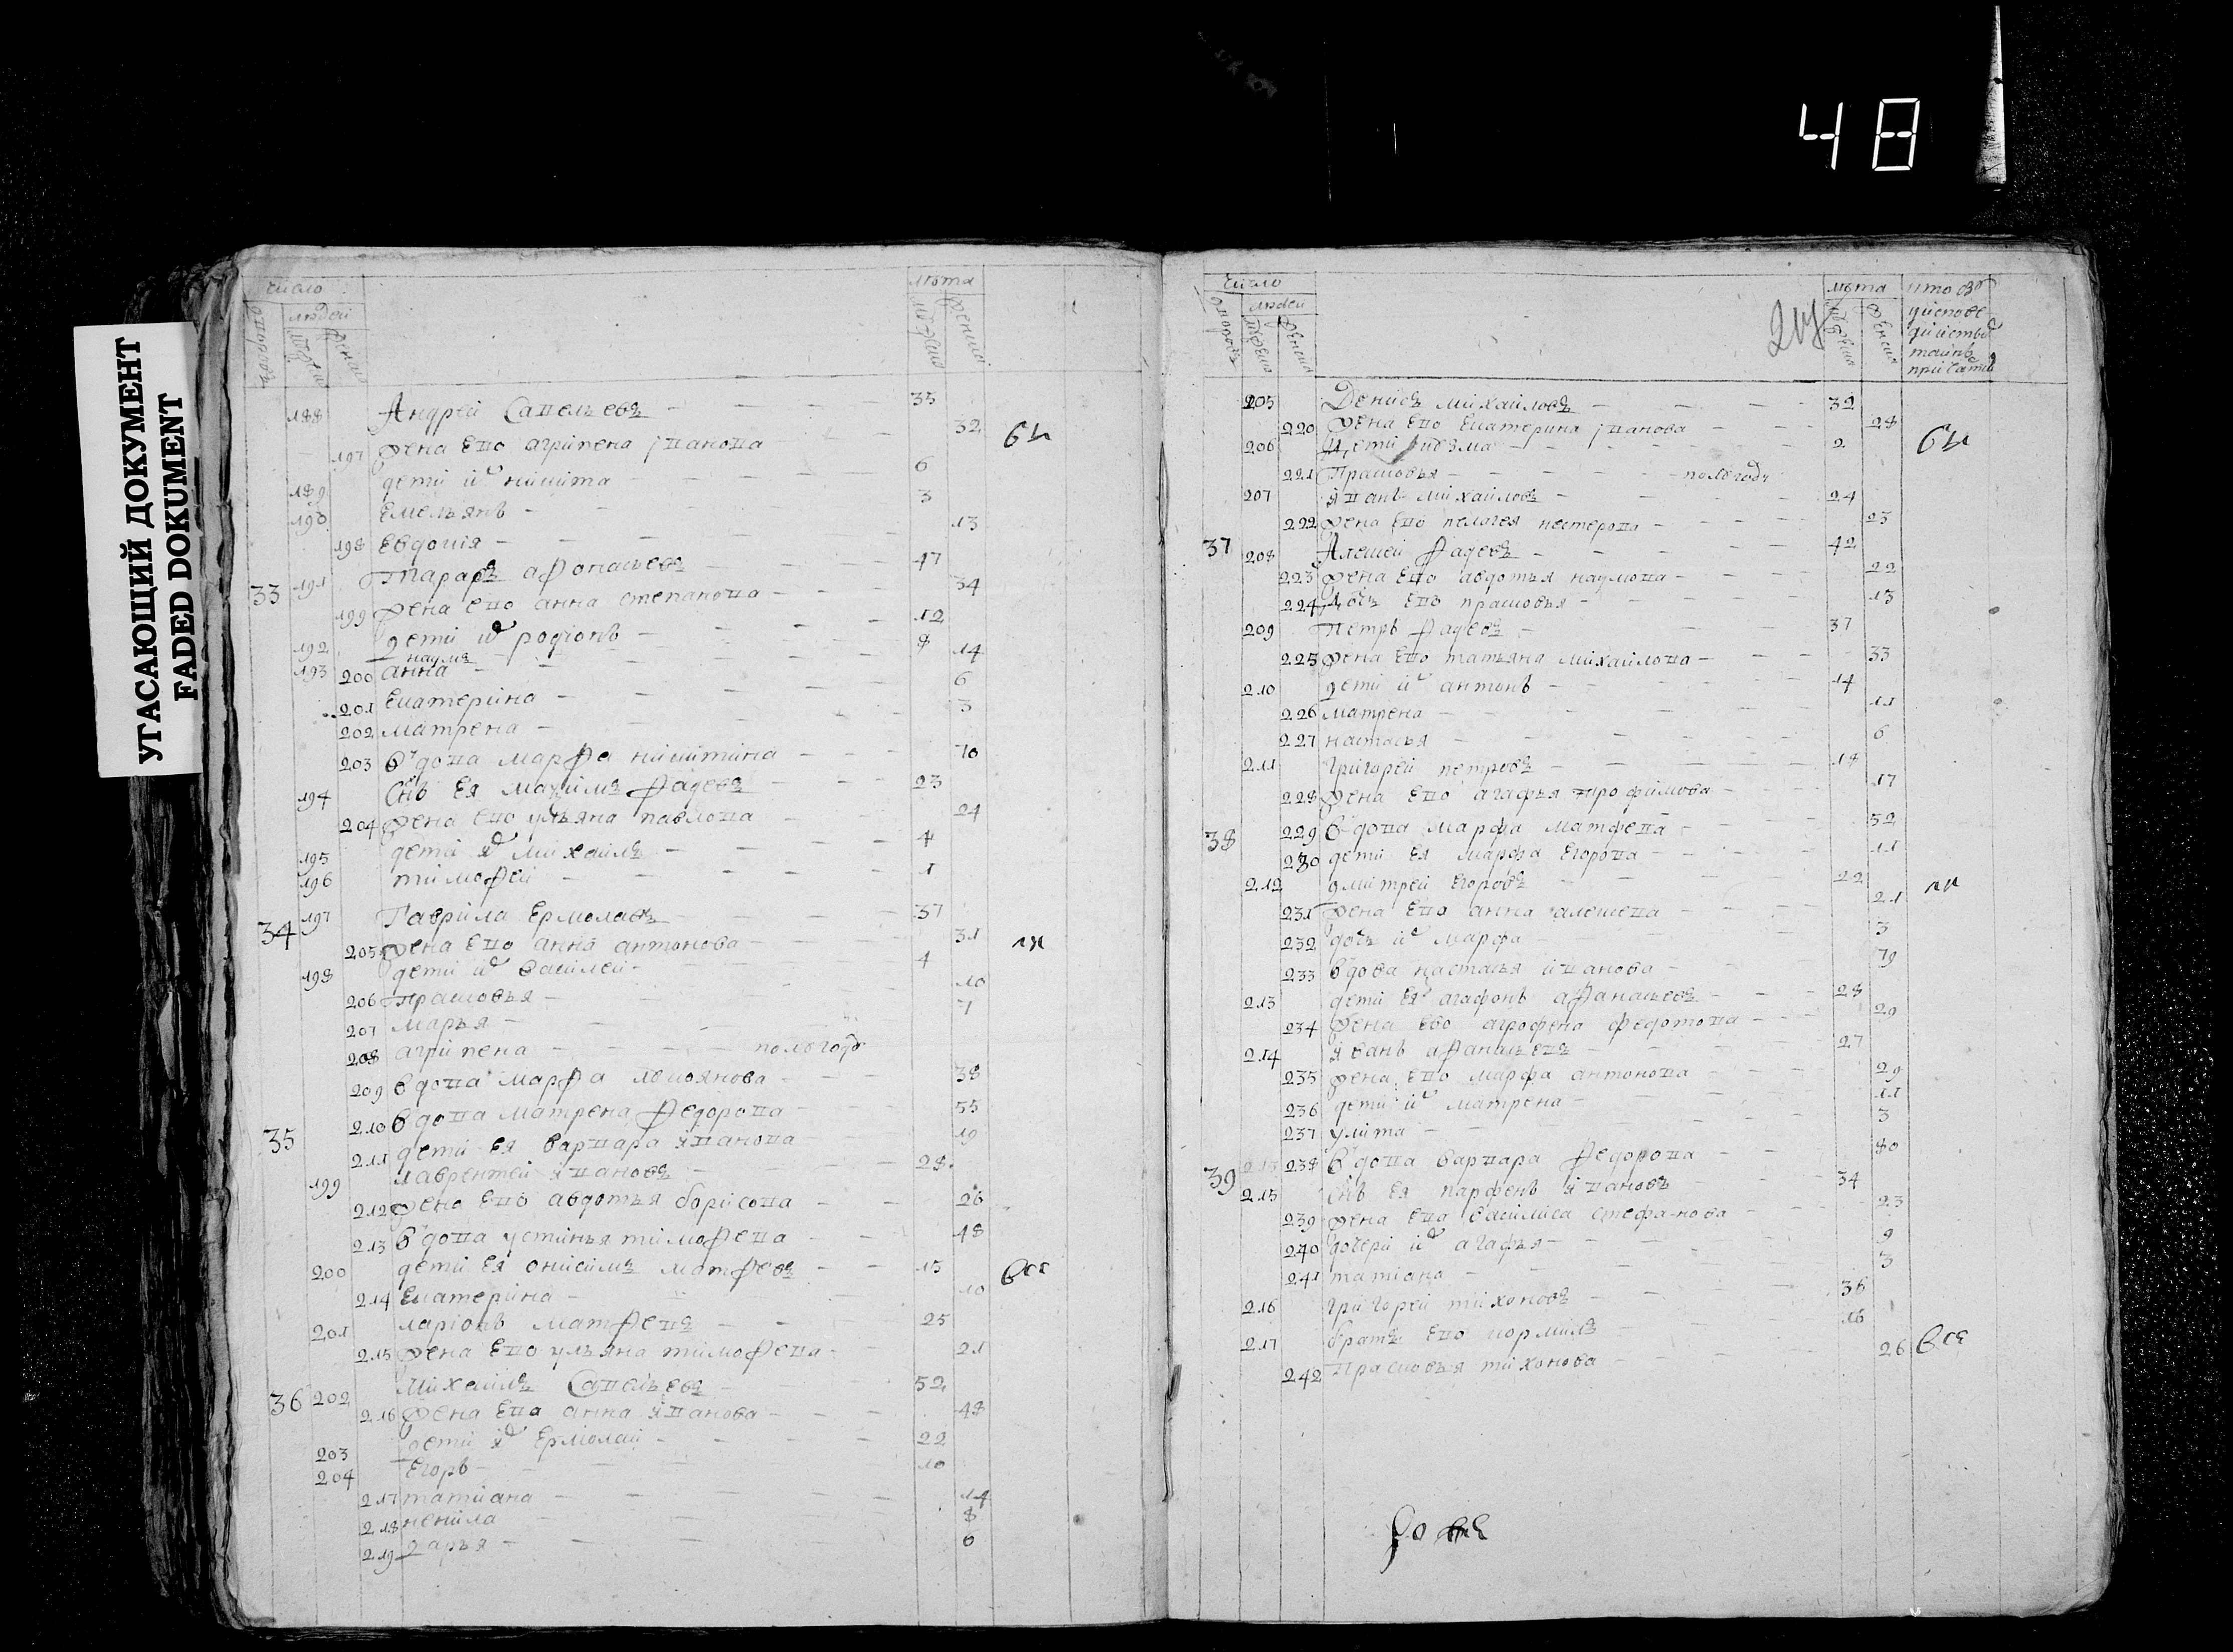 48
УГАСАЮЩИЙ ДОКУМЕНТ
FADED DOKUMENT
число
людей
лѣта
188 Андрей Савельевъ 35
197 жена ево агрипена івановa 32
189 дети их никита 6
190 Емельянъ 3
198 Евдокия 13
33 191 Тарасъ афонасьевъ 47
199 жена ево анна степанова 34
192 дети их родіонъ 12
193 наумъ 8
200 анна 14
201 Екатерина 6
202 матрена 3
203 вдова марфа никитина 70
194 Снъ Ея максимъ фадеевъ 23
204 жена ево ульяна павлова 24
195 дети их михаилъ 4
196 тимофей 1
34 197 Гаврила Ермолаевъ 37
205 жена ево анна антонова 31
198 дети их василей 4
206 Прасковья 10
207 марья 7
208 агрипена полвгода
209 вдова марфа 38
35 210 вдова матрена федорова 55
211 дети ея варвара иванова 19
199 лаврентей ивановъ 28
212 жена ево авдотья борисова 26
213 вдова устинья тимофева 48
200 дети Ея онисимъ матфевъ 15
все
214 Екатерина 10
201 ларіонъ матфевъ 25
215 жена Ево ульяна тимофева 21
36 202 Михаилъ Савельевъ 52
216 жена Ево анна иванова 48
203 дети их Ермолай 22
204 Егоръ 10
217 татиана 14
218 ненила 8
219 дарья 6
число
людей
лѣта
205 Денисъ михаиловъ 32
220 жена Ево Екатерина іванова 28
206 дети козма 2
221 Прасковья полвгода
207 иванъ михаиловъ 24
222 жена Ево пелагея нестерова 23
37 208 Алексей фадевъ 42
223 жена Ево авдотья наумова 22
224 дочь Ево прасковья 13
209 Петръ фадевъ 37
225 жена Ево татьяна михаилова 33
210 дети их антонъ 14
226 матрена 11
227 настасья 6
211 григорей петровъ 18
228 жена Ево агафья трофимова 17
38 229 вдова марфа матфева 52
230 дети Ея марфа Егорова 11
212 дмитрей Егоровъ 22
231 жена Ево анна алексева 21
232 дочь их марфа 3
233 вдова настасья иванова 79
213 дети Ея агафонъ афанасьевъ 28
234 жена Ево агрофена федотова 29
214 иванъ афанасьевъ 27
235 жена Ево марфа антонова 29
236 дети их матрена 11
237 улита 3
39 238 вдова варвара федорова 80
215 Снъ Ея парфенъ ивановъ 34
239 жена Ево василиса стефанова 23
240 дочери их агафья 9
241 татіана 3
216 григорей тихоновъ 36
217 братъ Ево кормилъ 16
242 Прасковья тихонова 26 все